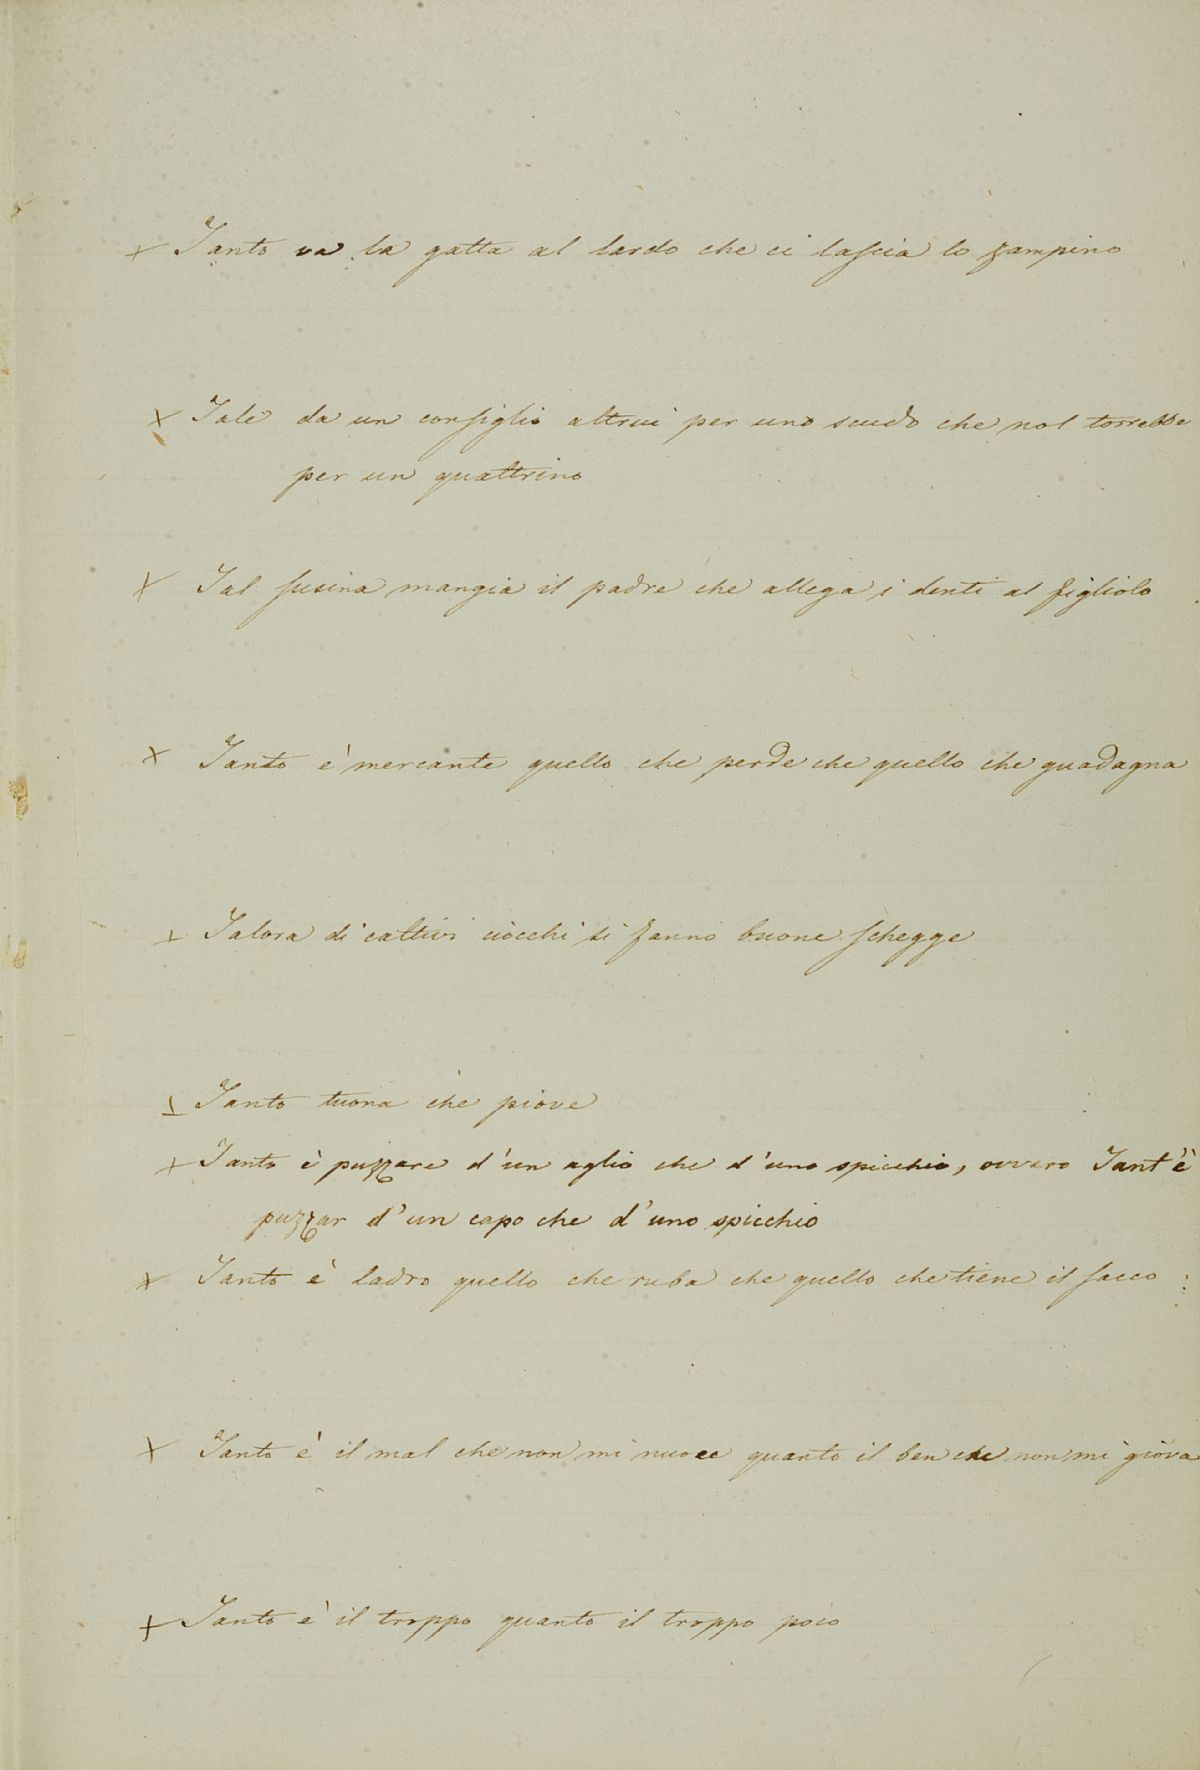 + Tanto va la gatta al lardo che ci lascia lo zampino
x Tale da un consiglio altrui per uno scudo che nol torrebbe
per un quattrino
x Tal susina mangia il padre che allega i denti al figliolo
x Tanto è mercante quello che perde che quello che guadagna
+ Talora di cattivi ciocchi si fanno buone schegge
+ Tanto tuona che piove
+ Tanto è puzzare d'un aglio che d'uno spicchio, ovvero Tant'è
puzzar d'un capo che d'uno spicchio
x Tanto è ladro quello che ruba che quello che tiene il sacco
x Tanto è il mal che non mi nuoce quanto il ben che non mi giova
+ Tanto è il troppo quanto il troppo poco